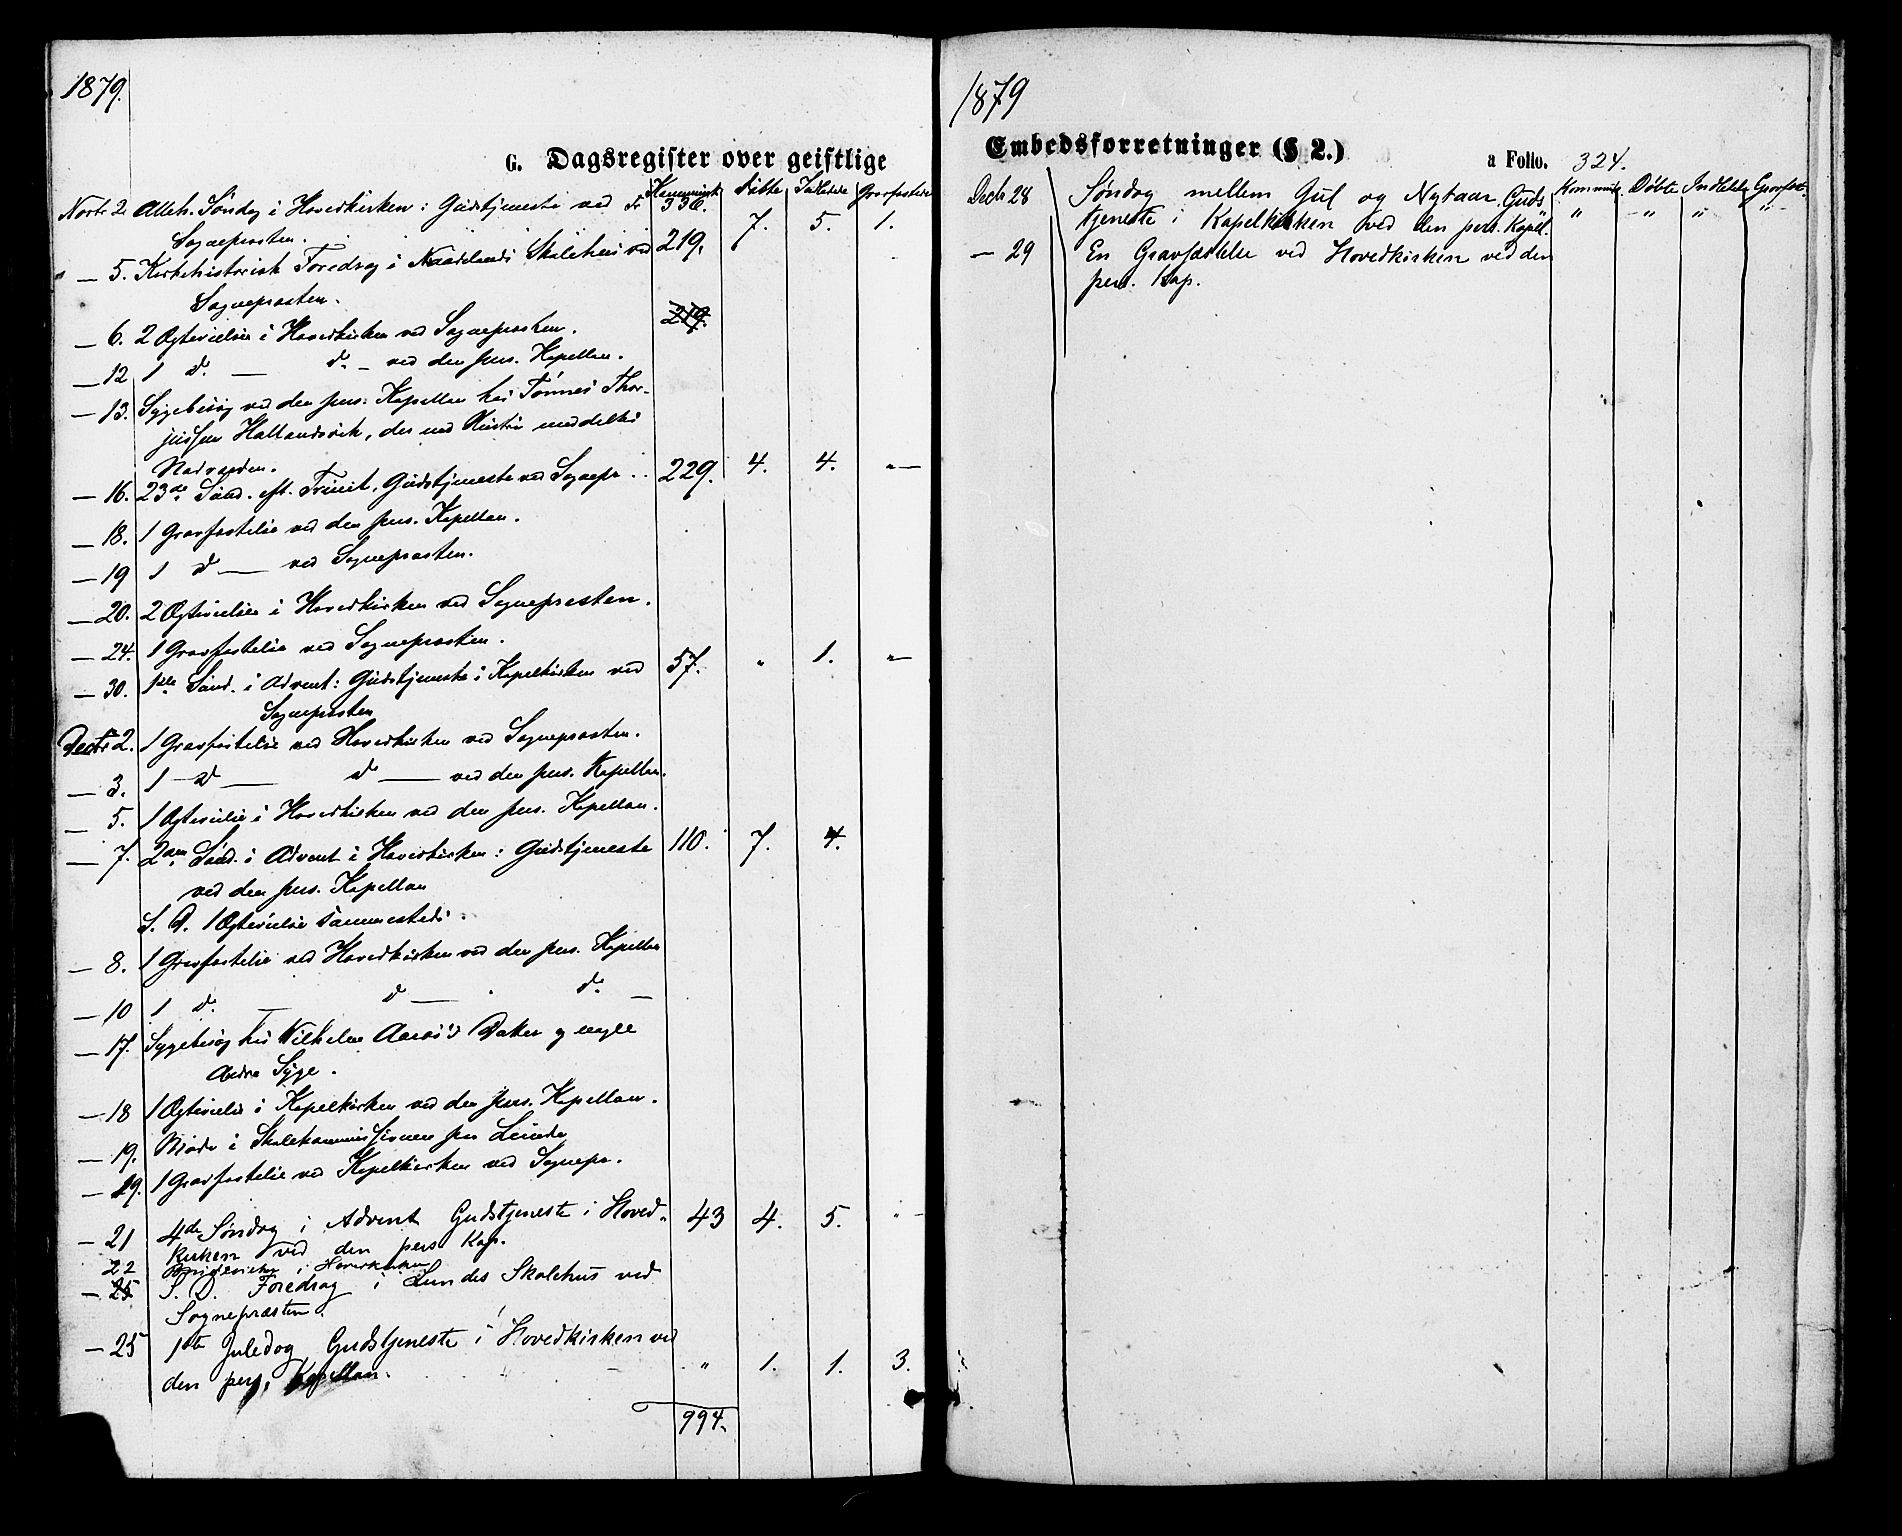 1879.
G. Dagsregister over geistlige
Kommunik. Døbte Indledde Gravfæstede
Novbr 2. Alleh. Søndag i Hovedkirken: Gudstjeneste ved Tr. 336. 7. 5. 1.
Sognepræsten.
" — 5. Kirkehistorisk Foredrag i Naadelands Skolehus ved 219.
Sognepræsten.
— 6. 2 Ægtevielser i Hovedkirken ved Sognepræsten. 219.
— 12 1 d. — d. — ved den pers. Kapellan.
— 13. Sygebesøg ved den pers. Kapellan hos Tønnes Thor-
jussen Hallandsvik, der med Hustru meddeltes
Nadverden.
— 16. 23de Sønd. eft. Trinit. Gudstjeneste ved Sognepr. 229. 4. 4. "—
— 18. 1 Gravfæstelse ved den pers. Kapellan.
— 19 1 d — ved Sognepræsten.
— 20. 2 Ægtevielser i Hovedkirken ved Sognepresten.
— 24. 1 Gravfæstelse ved Sognepræsten.
— 30. 1ste Sønd. i Advent: Gudstjeneste i Kapelkirken ved 57. " 1. "—
Sognepræsten
Decbr 2. 1 Gravfæstelse ved Hovedkirken ved Sognepræsten.
— 3. 1 — d — d — ved den pers. Kapellan.
— 5. 1 Ægtevielse i Hovedkirken ved den pers. Kapellan.
— 7. 2den Sønd. i Advent i Hovedkirken: Gudstjeneste 110. 7. 4.
ved den pers. Kapellan
S. D. 1 Ægtevielse sammesteds.
— 8. 1 Gravfæstelse ved Hovedkirken ved den pers. Kapellan
— 10 1 d. — d — d. —
— 17. Sygebesøg hos Vilhelm Aaros's Datter og nogle
Andre Syge.
— 18 1 Ægtevielse i Kapelkirken ved den pers. Kapellan.
— 19. Møde i Skolekommissionen paa Lunde
— 19. 1 Gravfæstelse ved Kapelkirken ved Sognepr.
— 21 4de Søndag i Advent Gudstjeneste i Hoved- 43 4. 5. "-
kirken ved den pers. Kap.
22 i Hovedkirken
— 25 S. D. Foredrag i Lundes Skolehus ved
Sognepræsten.
— 25 1ste Juledag Gudstjeneste i Hovedkirken ved
den pers. Kapellan. " 1. 1. 3.
994.
1879
Embedsforretninger (§ 2.)
a Folio. 324.
Kommunik. Døbte Indledde Gravfæst.
Decbr 28 Søndag mellem Jul og Nytaar. Guds
tjeneste i Kapelkirken ved den pers. Kapel. " -"- " "-
— 29 En Gravfæstelse ved Hovedkirken ved den
pers. Kap.